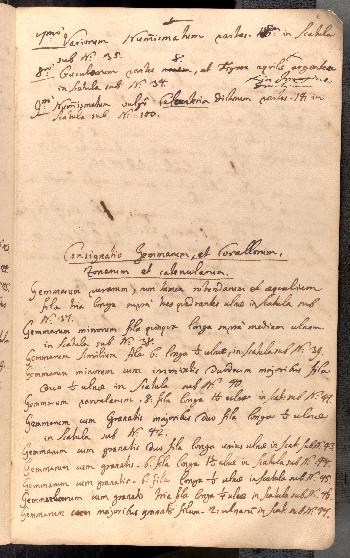 7mo Variorum Numismatum partes 18 in Scatula
sub No. 35.
8vo partes 8. et argentea
in Scatula sub No. 34.
9no Numismatum vulgo dictorum partes 14 in
Scatula sub No. 100.
Consignatio Gemmarum, et Corallorum,
Zonarum et catenularum.
Gemmarum verarum, non tamen rotundarum et aequalium
fila tria longa supra tres quadrantes ulnae in Scatula sub
No. 37.
Gemmarum minorum fila quinque longa supra mediam ulnam
in Scatula sub No. 38.
Gemmarum Similium fila 6. longa ulnae, in Scatula sub No. 39.
Gemmarum minorum cum immixtis Duodecim majoribus fila
ulnae in Scatula sub No. 40.
Gemmarum 8. fila longa ulnae in Scat. sub No. 41.
Gemmarum cum Granatis majoribus Duo fila longa ulnae
in Scatula sub No. 42.
Gemmarum cum granatis Duo fila longa unius ulnae in Scat. sub No. 43.
Gemmarum cum granatis 6. fila longa ulnae in Scatula sub No. 44.
Gemmarum cum granatis 6. fila longa ulnae in Scatula sub No. 45.
Gemmarum cum granatis tria fila longa ulnae in Scatula sub No. 46.
Gemmarum cum majoribus granatis filum 2. in Scat. sub No. 47.